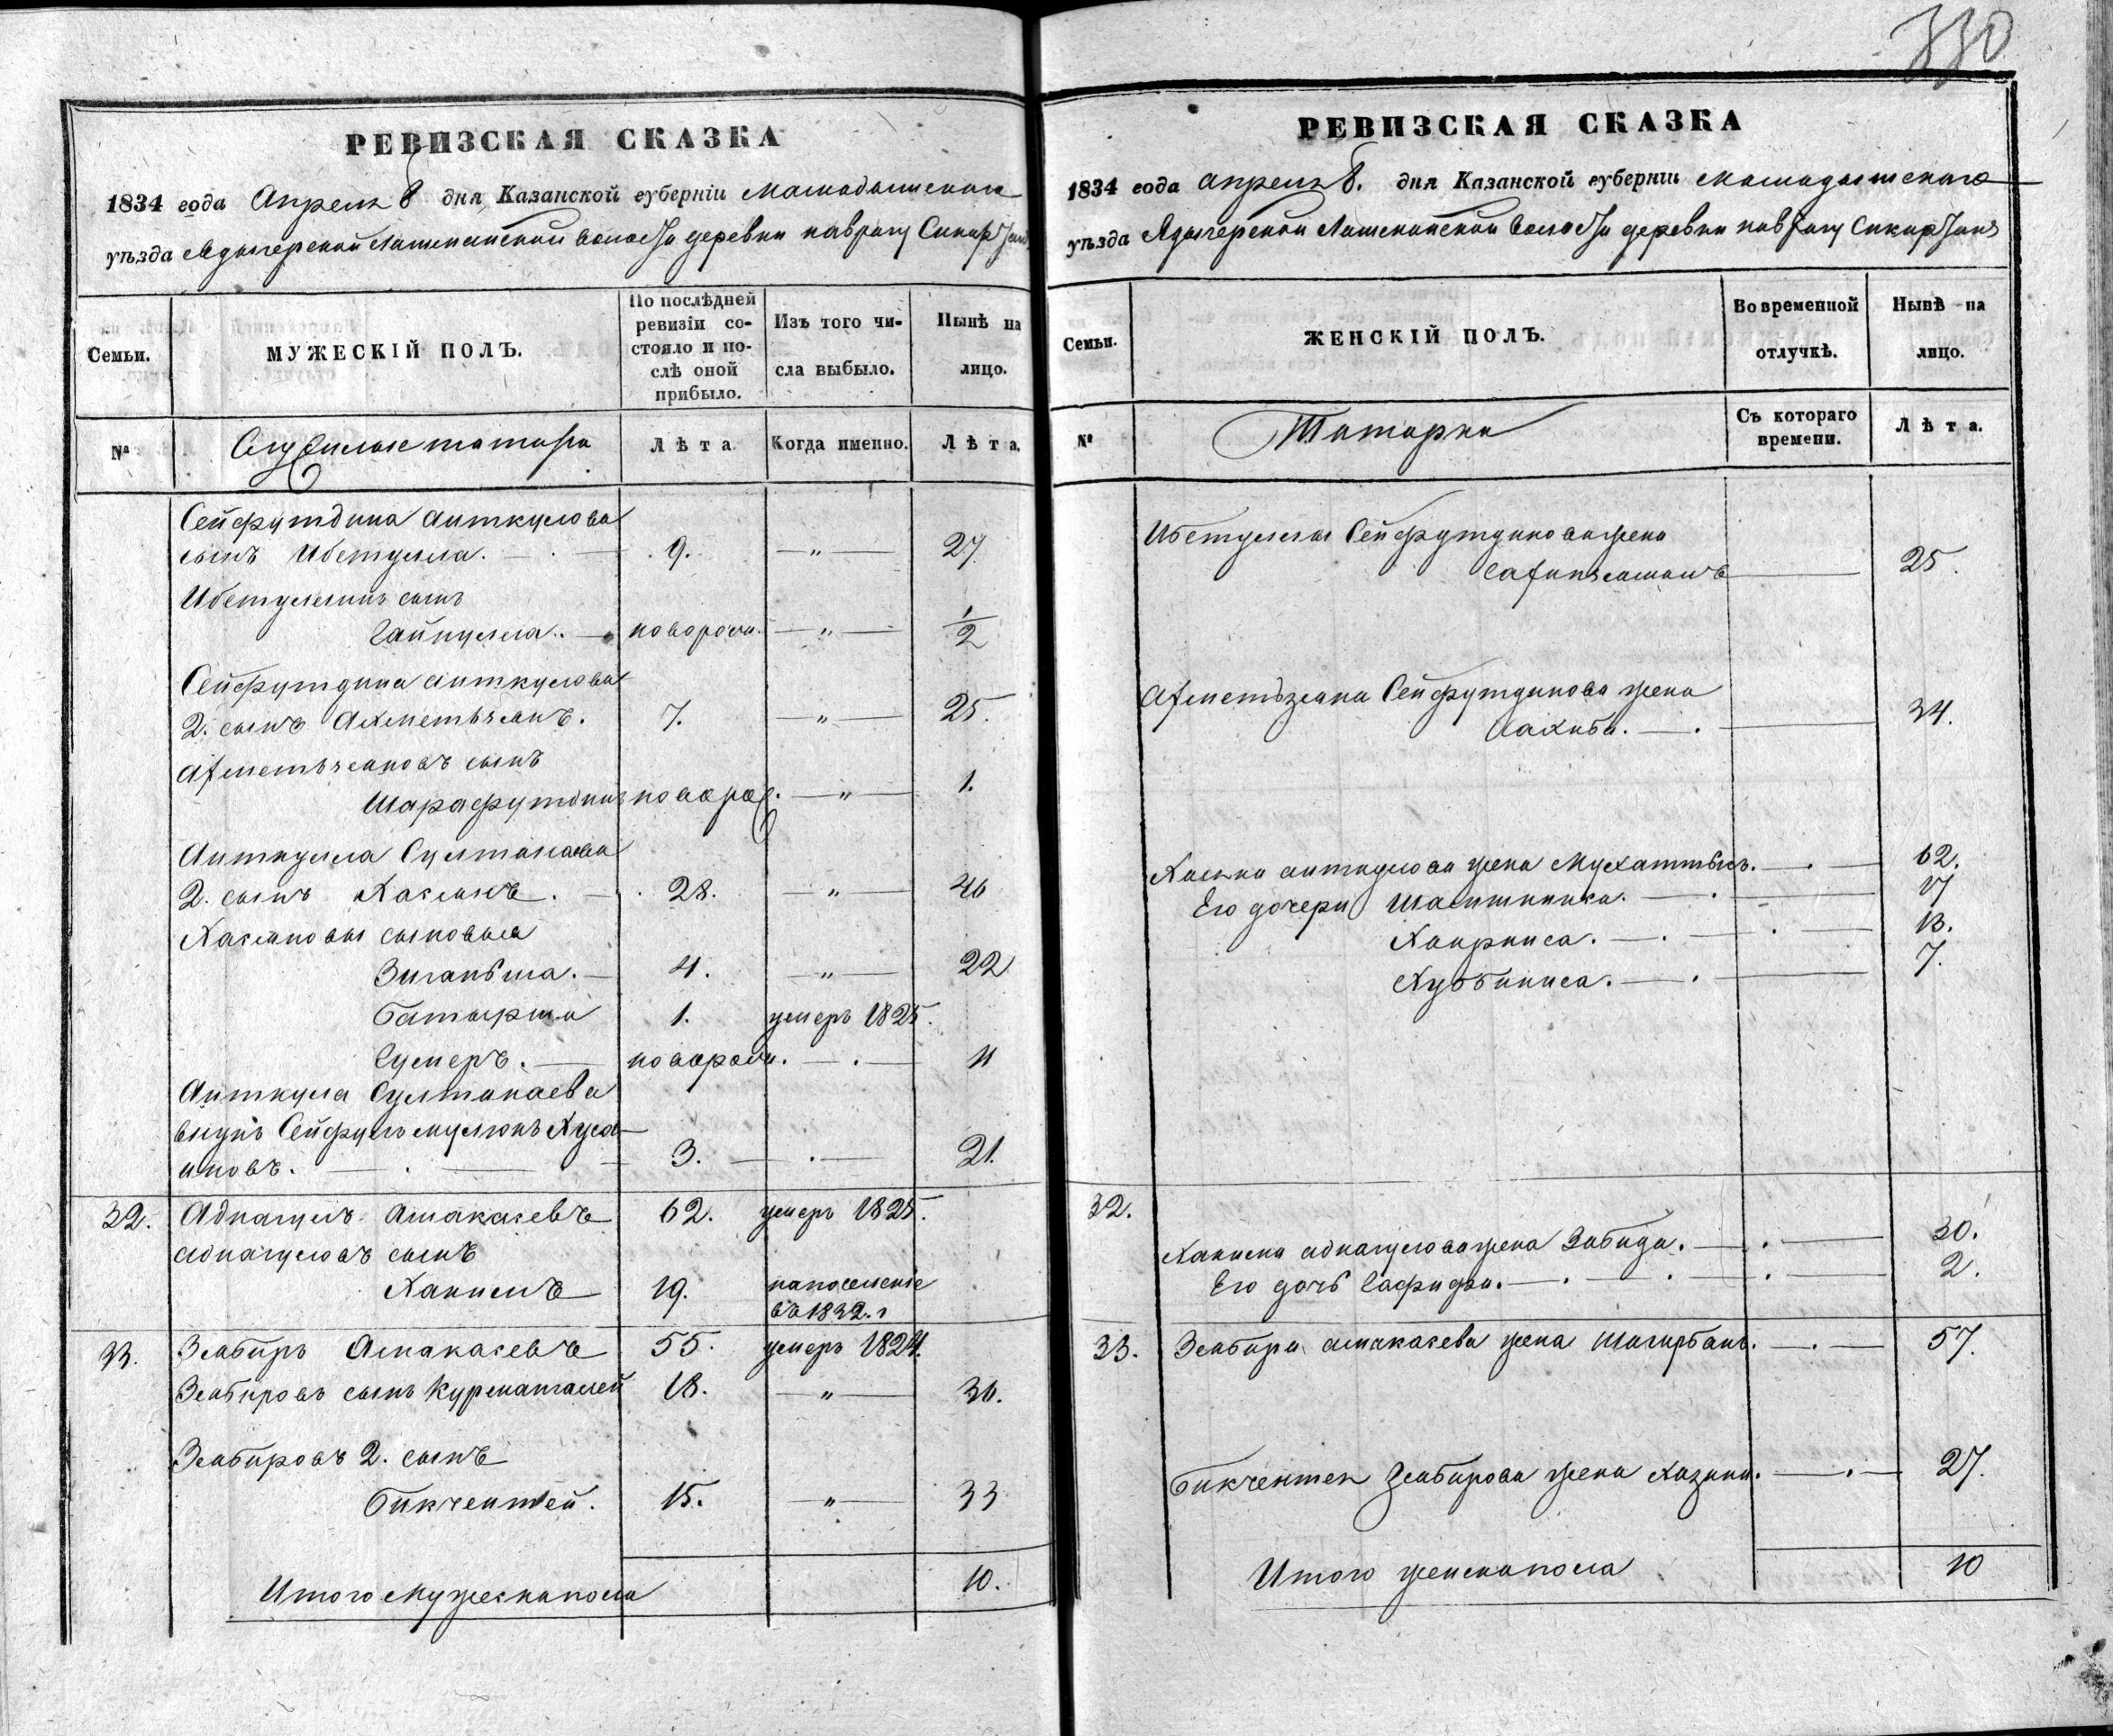 330
РЕВИЗСКАЯ СКАЗКА
1834 года Апреля 8 дня Казанской губерніи Мамадышскаго
уѣзда волости деревни
Семьи.
МУЖЕСКІЙ ПОЛЪ.
По послѣдней ревизіи состояло и послѣ оной прибыло.
Изъ того числа выбыло.
Нынѣ на лицо.
№
Служилые татара
Лѣта.
Когда именно.
Лѣта.
Сейфутдина Аиткулова
сынъ Ибетулла. 9. — „ — 27
Ибетуллинъ сынъ
Гайнулла. новорож. — „ — 1/2
Сейфутдина аиткулова
2. сынъ Ахметьзянъ. 7. — „ — 25.
Ахметьзяновъ сынъ
Шарафутдинъ новорож. — „ — 1.
Аиткулла Султанаева
2. сынъ Хасанъ. 28. — „ — 46
Хасановы сыновья
Зиганьша. 4. — „ — 22
Батырша 1. умеръ 1825.
Гумеръ. новорож. — . — 11
Аиткула Султанаева
внукъ Сейфульмулюкъ Хуса-
иновъ. 3. — . — 21.
32. Аднагулъ Амакаевъ 62. умеръ 1825.
аднагуловъ сынъ
Хакимъ 19. напоселеніе
въ 1832. г
33. Зябиръ Амакаевъ 55. умеръ 1824.
Зябировъ сынъ Курматалей 18. — „ — 36.
Зябировъ 2. сынъ
Бикчентей. 15. — „ — 33
Итого Мужеска пола 10.
РЕВИЗСКАЯ СКАЗКА
1834 года апреля 8. дня Казанской губерніи Мамадышскаго
уѣзда волости деревни
Семьи.
ЖЕНСКІЙ ПОЛЪ.
Во временной отлучкѣ.
Нынѣ на лицо.
№
Татарки
Съ котораго времени.
Лѣта.
Ибетуллы Сейфутдинова жена
25.
Ахметьзяна Сейфутдинова жена
Сахиба. 34.
Хасана аиткулова жена 62.
Его дочери 17
Хаирниса. 13.
Хуббиниса. 7.
32.
Хакима аднагулова жена Забида. 30.
Его дочь Гафифа. 2.
33. Зябира амакаева жена Шагирбанъ. 57.
Бикчентея Зябирова жена Хазина. 27.
Итого женска пола 10